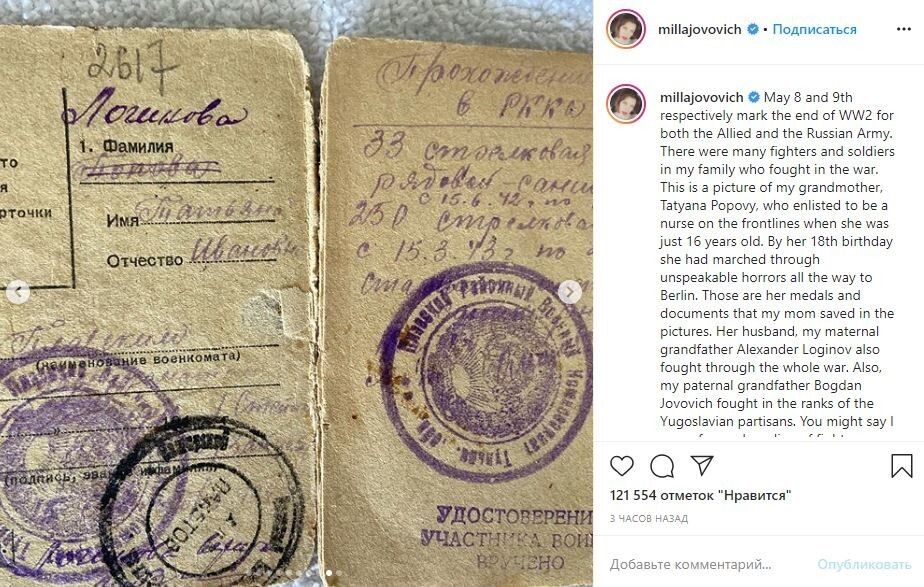 2617
Логинова
1. Фамилия
Попова
Имя Татьяна
Отчество
то
я
рточки
(наименование военкомата)
(подпись,
в РККА
33 стрелковая
рядовой
с 15.6.42г. по
250 стрелкова
с 15.3.43г по
УДОСТОВЕРЕНИ
УЧАСТНИКА ВОЙ
ВРУЧЕНО
millajovovich • Подписаться
millajovovich May 8 and 9th
respectively mark the end of WW2 for
both the Allied and the Russian Army.
There were many fighters and soldiers
in my family who fought in the war.
This is a picture of my grandmother,
Tatyana Popovy, who enlisted to be a
nurse on the frontlines when she was
just 16 years old. By her 18th birthday
she had marched through
unspeakable horrors all the way to
Berlin. Those are her medals and
documents that my mom saved in the
pictures. Her husband, my maternal
grandfather Alexander Loginov also
fought through the whole war. Also,
my paternal grandfather Bogdan
Jovovich fought in the ranks of the
Yugoslavian partisans. You might say I
121 554 отметок "Нравится"
3 ЧАСОВ НАЗАД
Добавьте комментарий...
Опубликовать